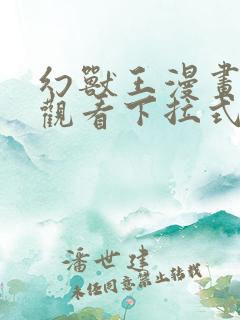 幻獸王漫畫
觀看下拉式
潘世建
未任同意禁止轉載